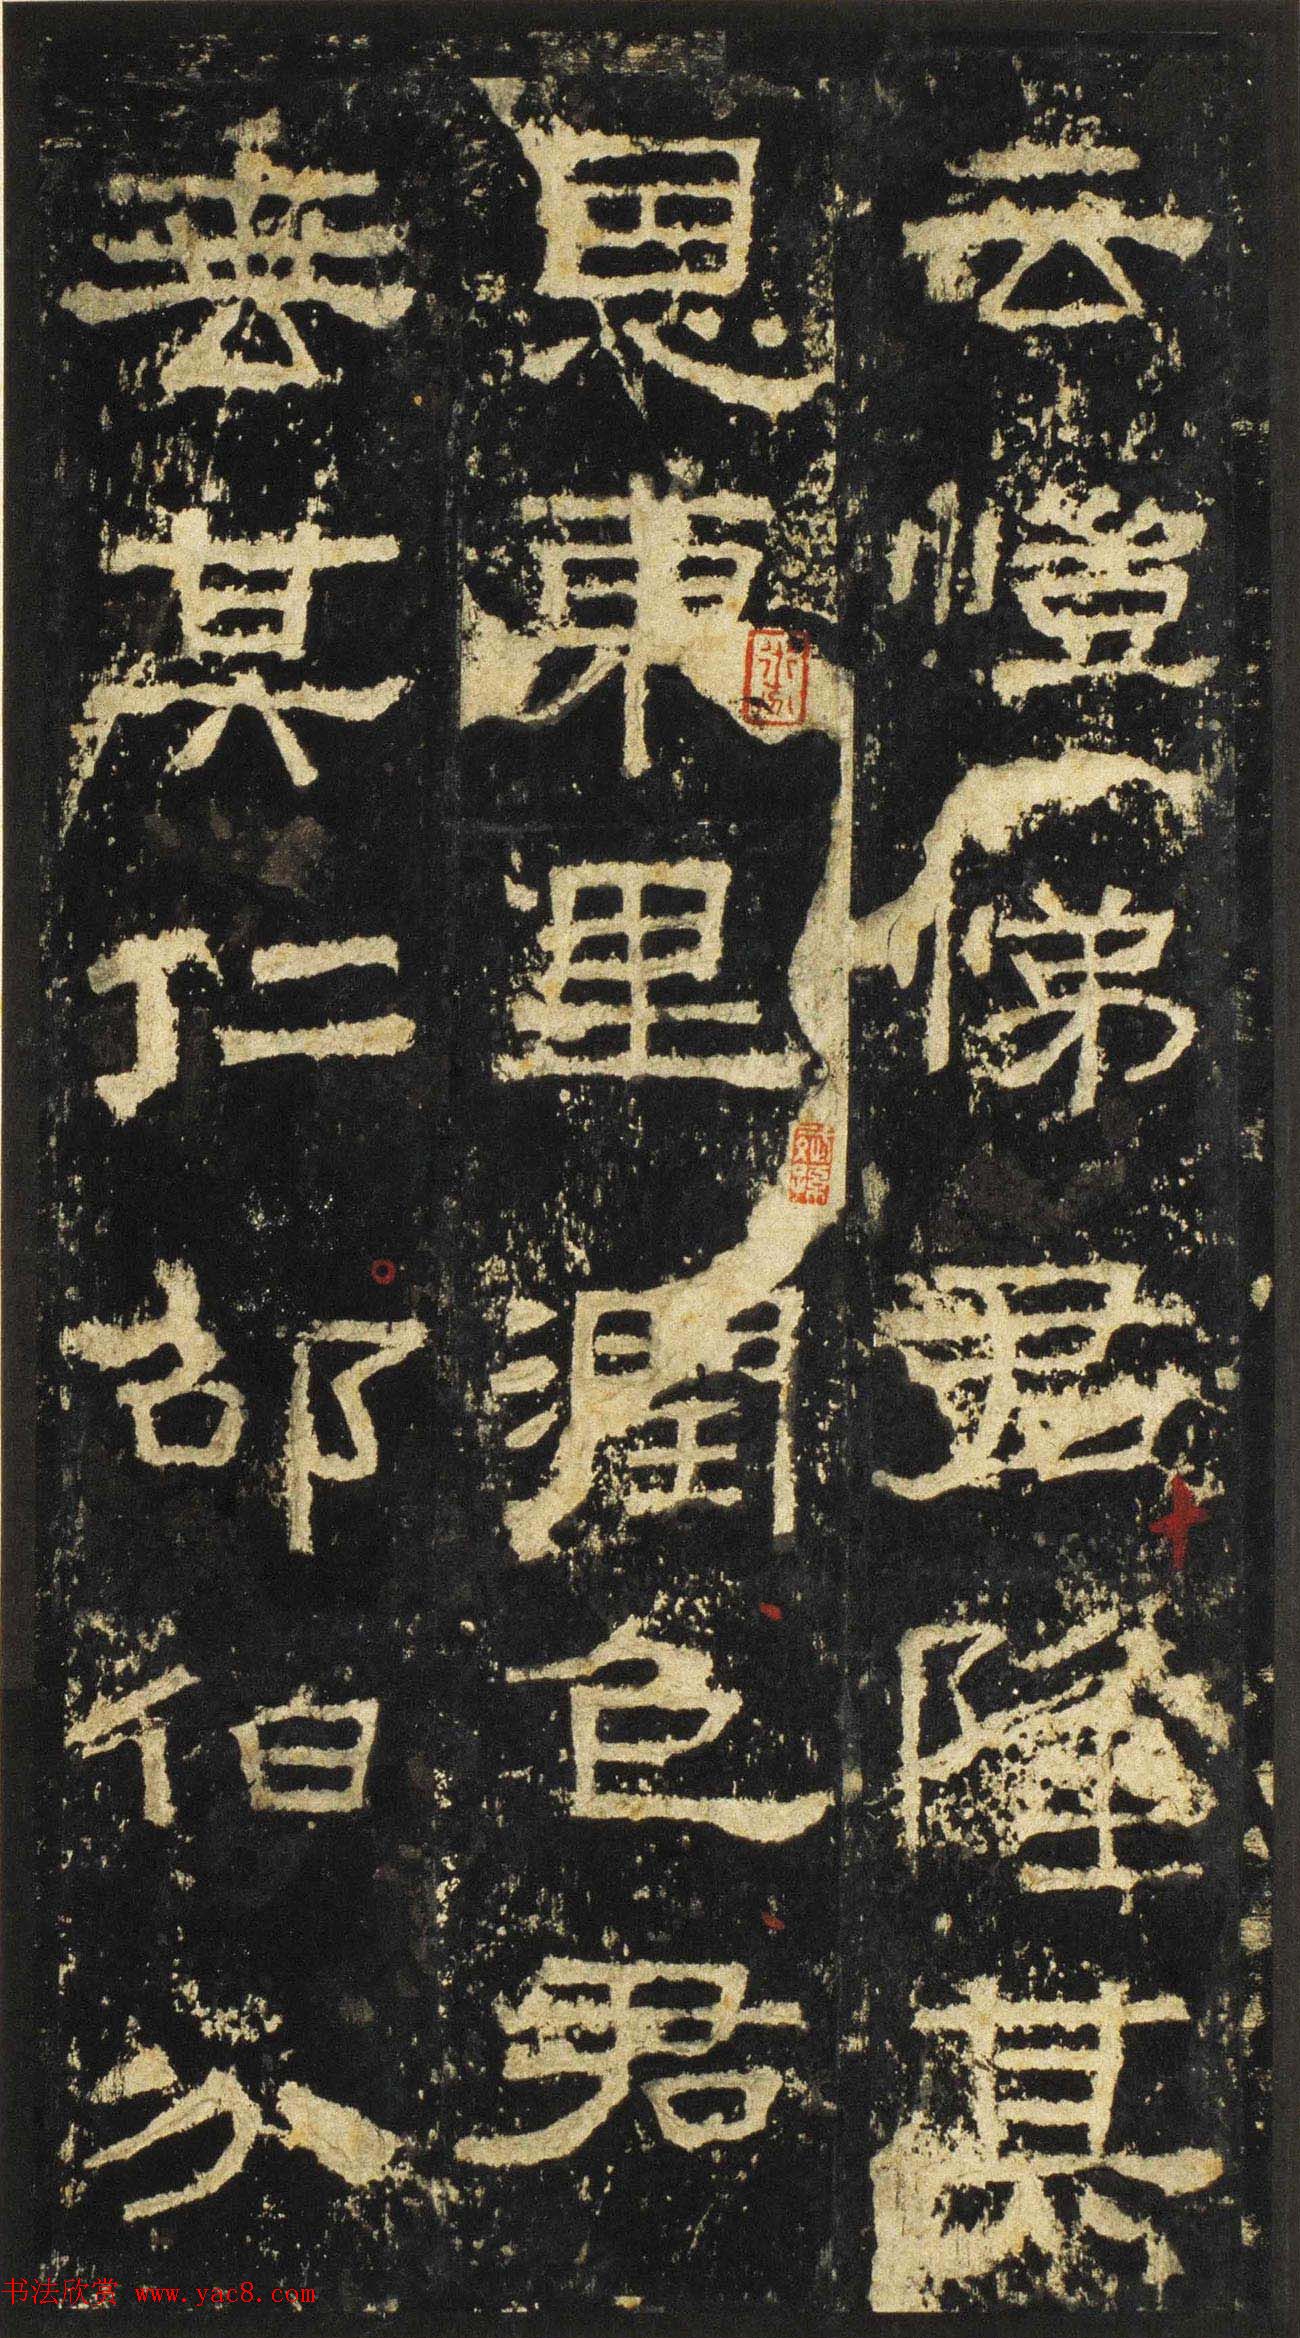 云愷悌君隆其
恩東里潤色君
垂其仁邵伯分
书法欣赏 www.yac8.com